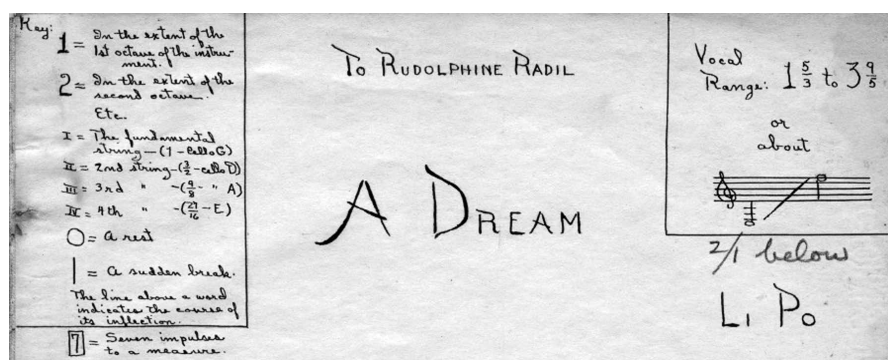 Key:
1 = In the extent of the
1st octave of the instru-
ment.
2 = In the extent of the
second octave.
Etc.
I = The fundamental
string—(1 - cello G)
II = 2nd string—(3/2 - cello D)
III = 3rd " -(9/8 - " A)
IV = 4th " -(27/16 - E)
O = A rest
| = A sudden break.
The line above a word
indicates the course of
its inflection.
7 = Seven impulses
to a measure.
To Rudolphine Radil
A Dream
Vocal
Range: 1 5/3 to 3 9/5
or
about
2/1 below
Li Po